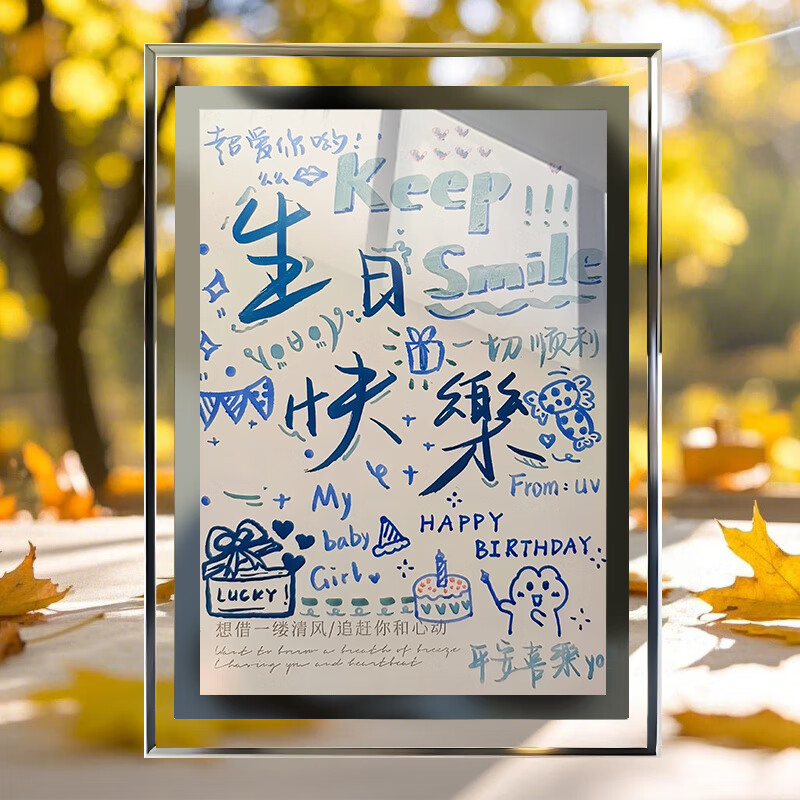 超爱你哟!
Keep!!!
生日
Smile
一切顺利
快樂
From: uv
My
baby
Girl
HAPPY
BIRTHDAY
LUCKY!
想借一缕清风/追赶你和心动
Want to borrow a breath of breeze
Chasing you and heartbeat
平安喜樂yo